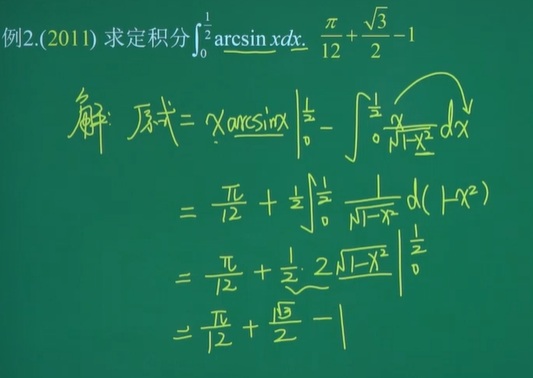 例2.(2011) 求定积分∫₀^{1/2} arcsin xdx. π/12 + √3/2 − 1
解: 原式 = x arcsinx |₀^{1/2} − ∫₀^{1/2} x/√(1−x²) dx
= π/12 + 1/2 ∫₀^{1/2} 1/√(1−x²) d(1−x²)
= π/12 + 1/2 · 2√(1−x²) |₀^{1/2}
= π/12 + √3/2 − 1